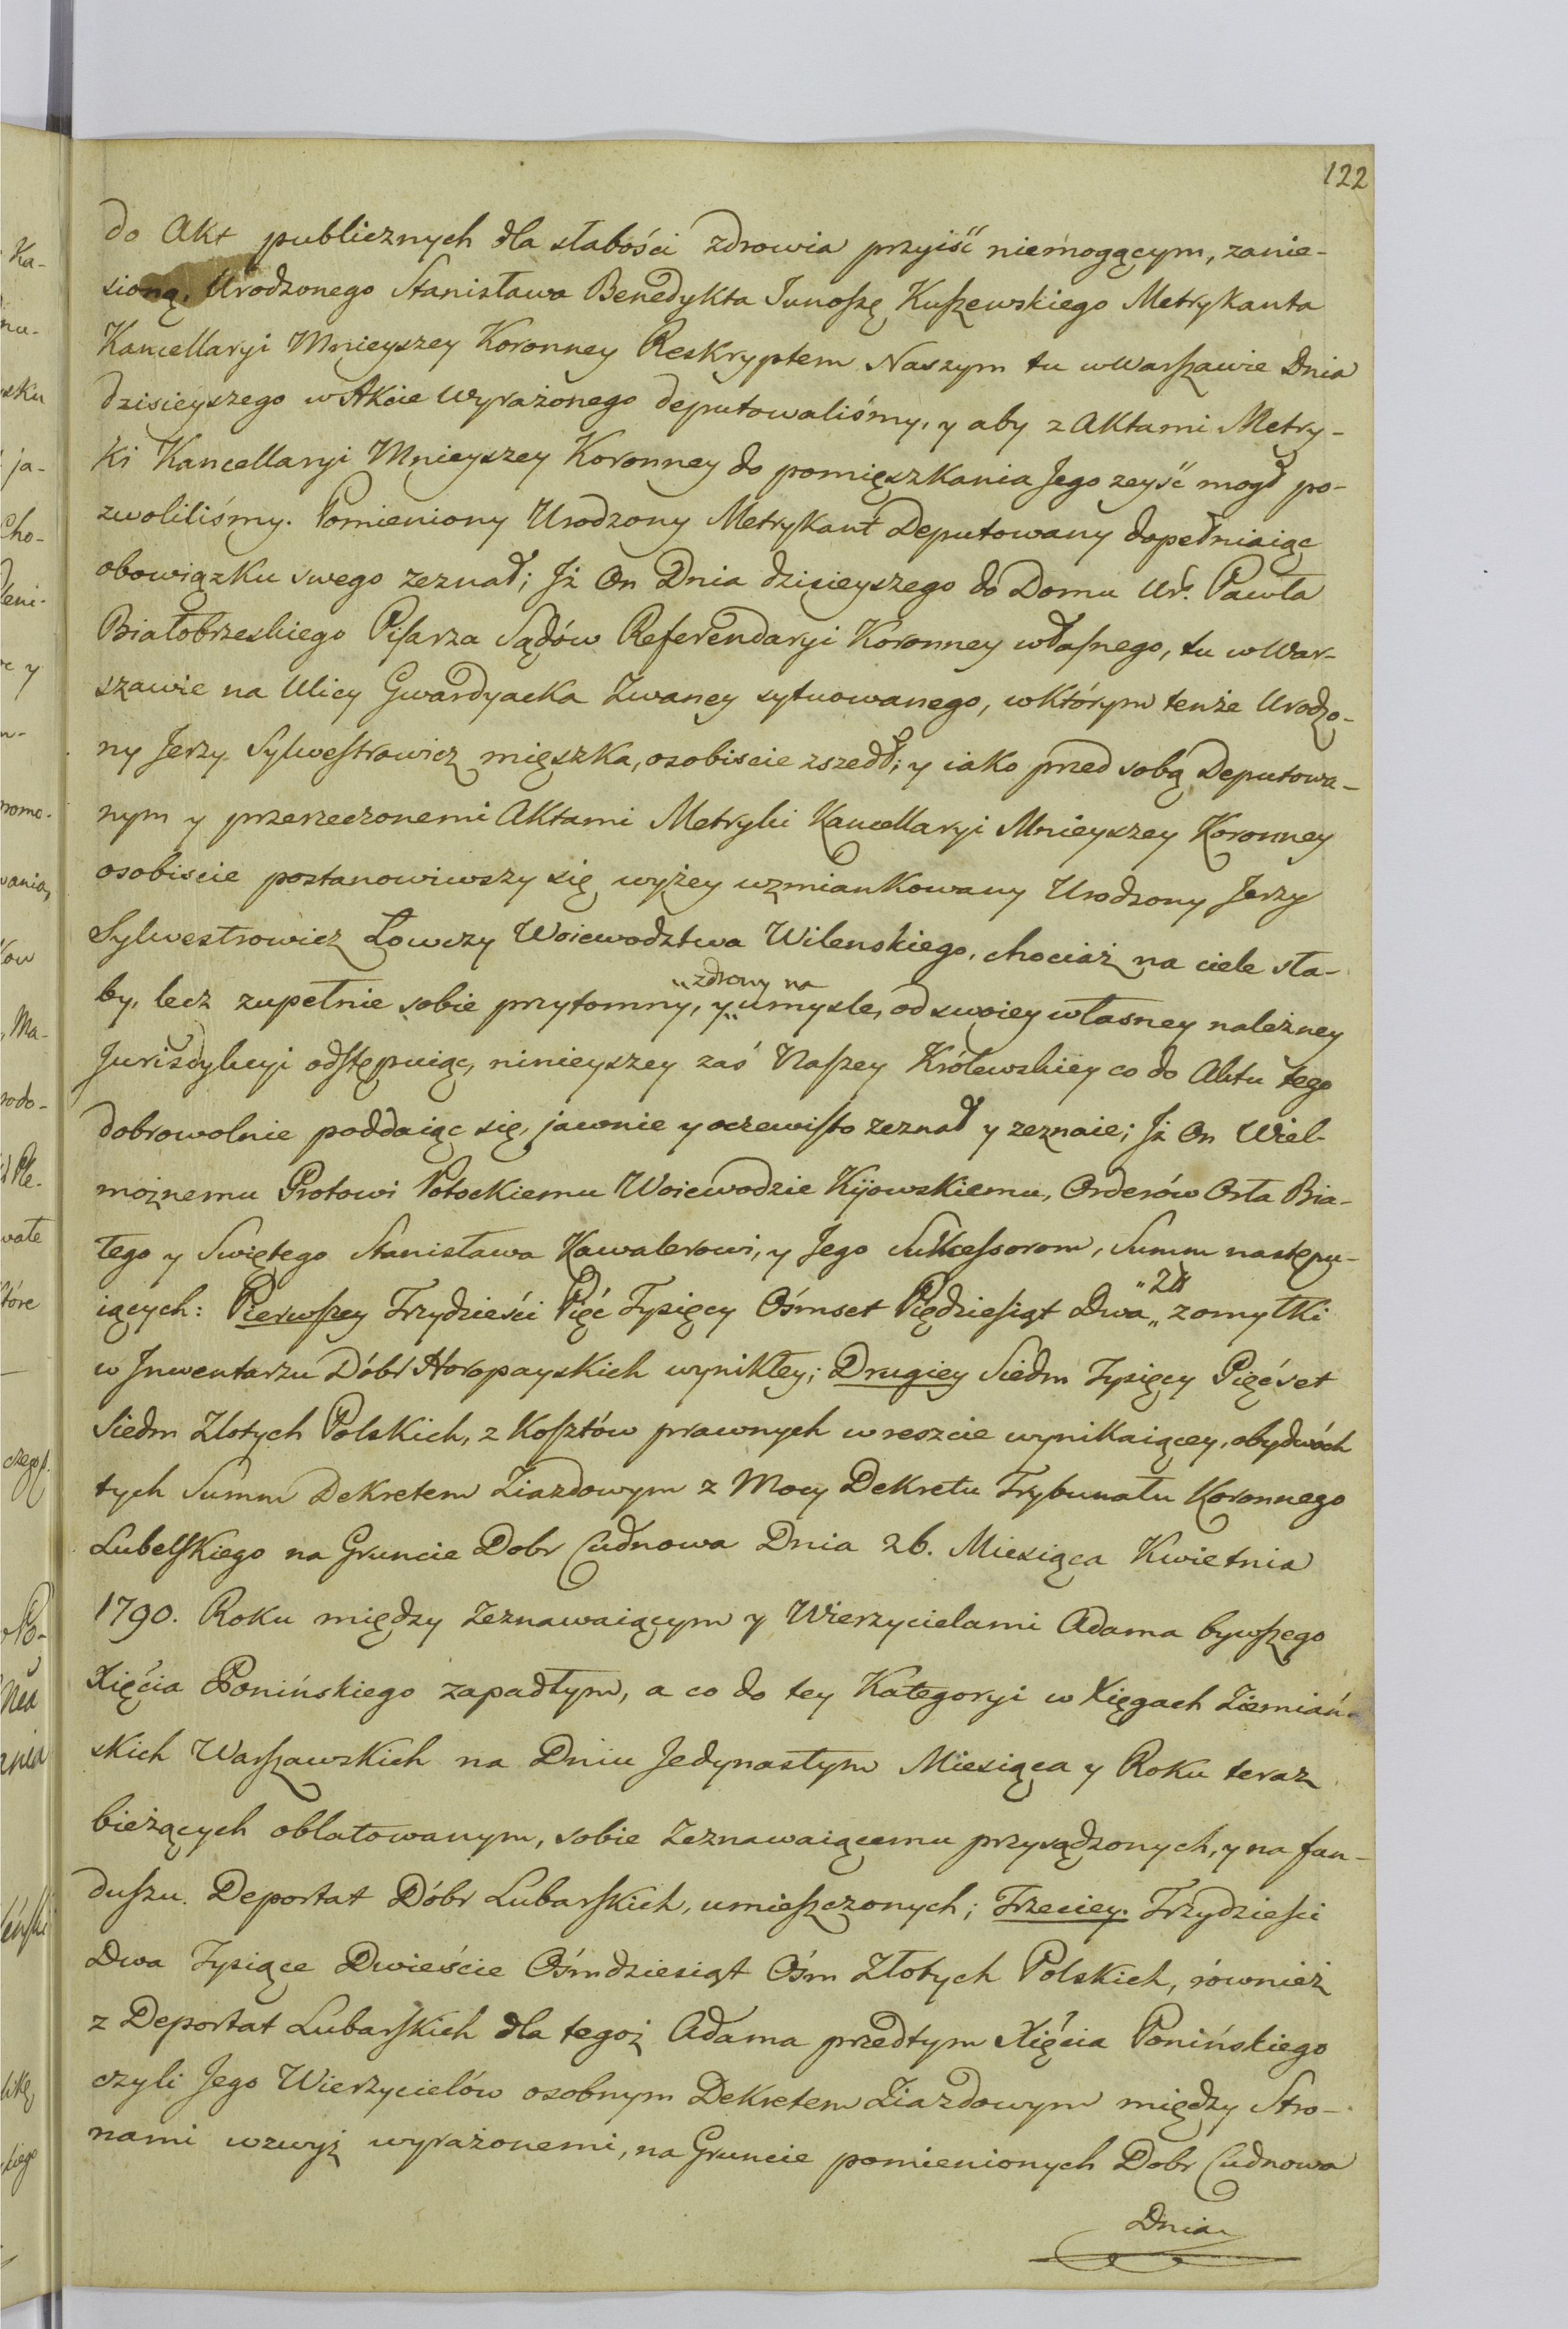 122
do Akt publicznych dla słabości zdrowia przyiść niemogącym, zanie-
sioną, Urodzonego Stanisława Benedykta Junoszę Kuszewskiego Metrykanta
Kancellaryi Mnieyszey Koronney Reskryptem Naszym tu w Warszawie Dnia
dzisieyszego w Akcie wyrażonego deputowaliśmy, y aby z Aktami Metry-
ki Kancellaryi Mnieyszey Koronney do pomięszkania Jego zeyść mogł po-
zwoliliśmy. Pomieniony Urodzony Metrykant Deputowany dopełniaiąc
obowiązku swego zeznał; Jż On Dnia dzisieyszego do Domu Ur. Pawła
Białobrzeskiego Pisarza Sądów Referendaryi Koronney własnego, tu w War-
szawie na Ulicy Gwardyacka Zwaney sytuowanego, w którym tenże Urodzo-
ny Jerzy Sylwestrowicz mięszka, osobiscie zszedł; y iako przed sobą Deputowa-
nym y przerzeczonemi Aktami Metryki Kancellaryi Mnieyszey Koronney
osobiscie postanowiwszy się wyżey wzmiankowany Urodzony Jerzy
Sylwestrowicz Łowczy Woiewodztwa Wilenskiego, chociaż na ciele sła-
by, lecz zupełnie sobie przytomny, y „zdrowy na umysle, od swoiey własney należney
Jurisdykcyi odstępuiąc, ninieyszey zaś Naszey Królewskiey co do Aktu tego
dobrowolnie poddaiąc się, jawnie y oczewisto zeznał y zeznaie; Jż On Wiel-
możnemu Protowi Potockiemu Woiewodzie Kijowskiemu, Orderów Orła Bia-
łego y Swiętego Stanisława Kawalerowi, y Jego Sukcessorom, Summ następu-
iących: Pierwszey Trzydzieści Pięć Tysięcy Ośmset Pięдziesiąt Dwa „Zł„ z omyłki
w Inwentarzu Dóbr Horopayskich wynikłey; Drugiey Siedm Tysięcy Pięćset
Siedm Zlotych Polskich, z Kosztów prawnych w reszcie wynikaiącey, obydwóch
tych Summ Dekretem Ziazdowym z Mocy Dekretu Trybunału Koronnego
Lubelskiego na Gruncie Dobr Cudnowa Dnia 26. Miesiąca Kwietnia
1790. Roku między Zeznawaiącym y Wierzycielami Adama bywszego
Xięcia Ponińskiego zapadłym, a co do tey Kategoryi w Xięgach Ziemiań-
skich Warszawskich na Dniu Jedynastym Miesiąca y Roku teraz
bieżących oblatowanym, sobie Zeznawaiącemu przysądzonych, y na fun-
duszu Deportat Dóbr Lubarskich, umieszczonych; Trzeciey. Trzydzieści
Dwa Tysiące Dwieście Ośmdziesiąt Ośm Złotych Polskich, również
z Deportat Lubarskich dla tegoż Adama przedtym Xięcia Ponińskiego
czyli Jego Wierzycielów osobnym Dekretem Ziazdowym między Stro-
nami wzwyż wyrażonemi, na Gruncie pomienionych Dobr Cudnowa
Dnia